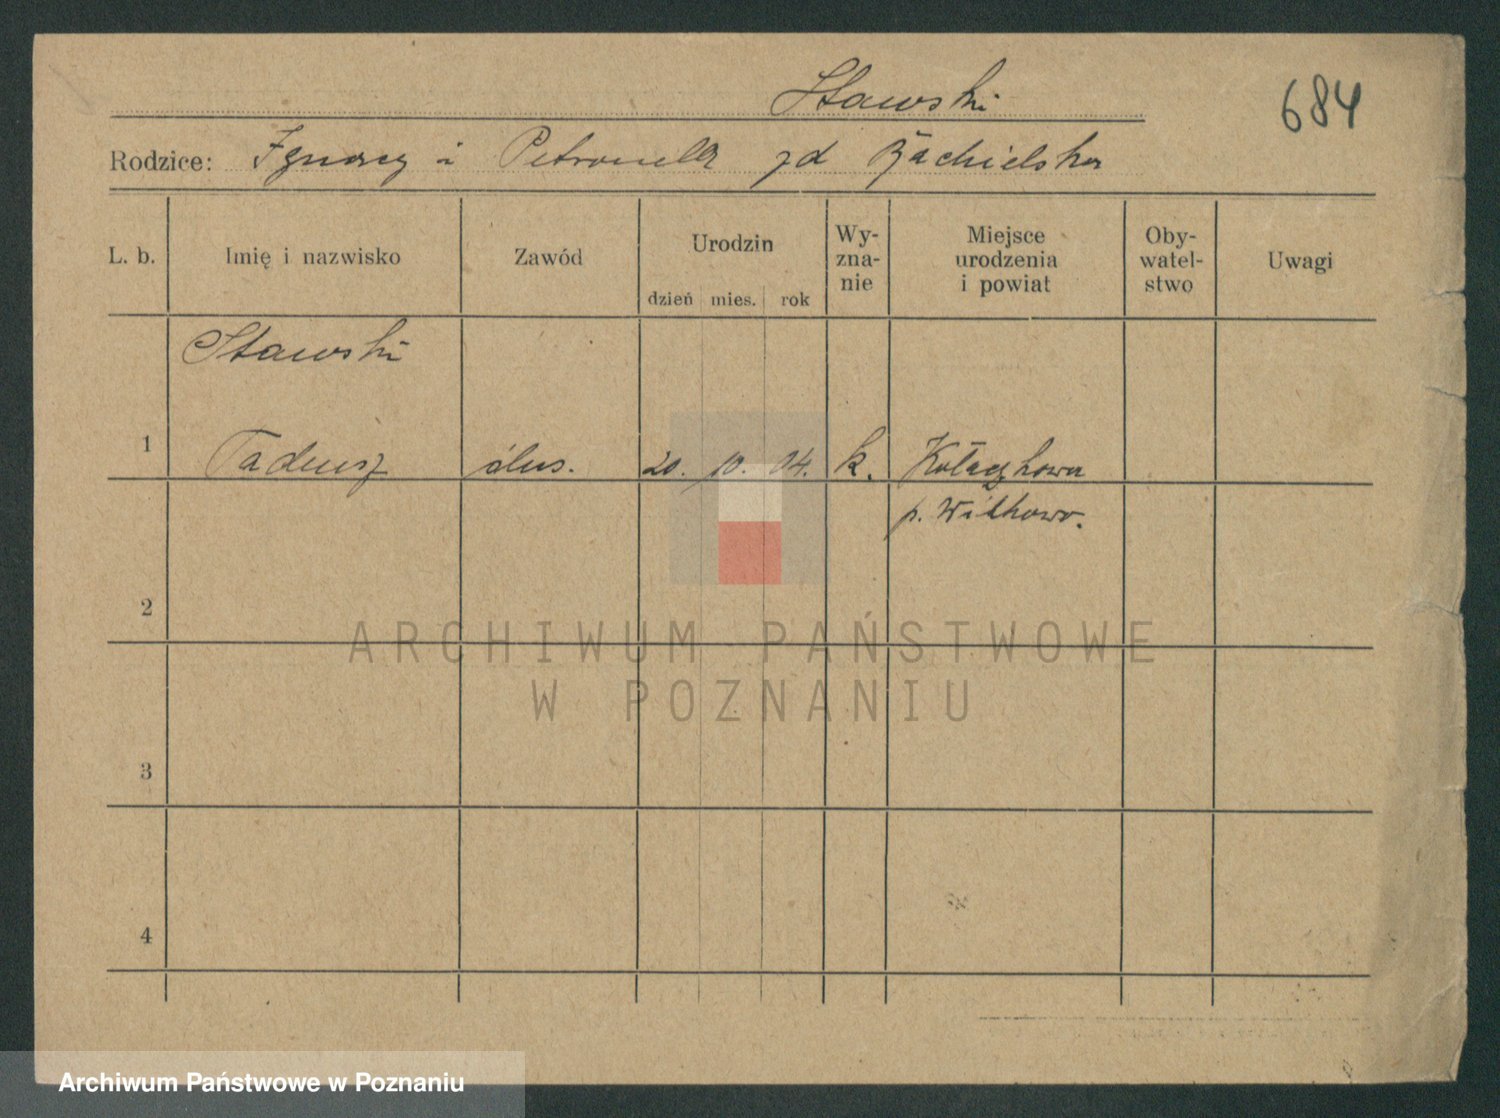 Stawski
684
Rodzice: Ignacy i Petronella zd Bachielska
L. b. Imię i nazwisko Zawód Urodzin dzień mies. rok Wy-zna-nie Miejsce urodzenia i powiat Oby-watel-stwo Uwagi
Stawski
1 Tadeusz ślus. 20. 10. 04. k. Kołaczkowo
p. Witkowo.
2
ARCHIWUM PAŃSTWOWE
W POZNANIU
3
4
Archiwum Państwowe w Poznaniu